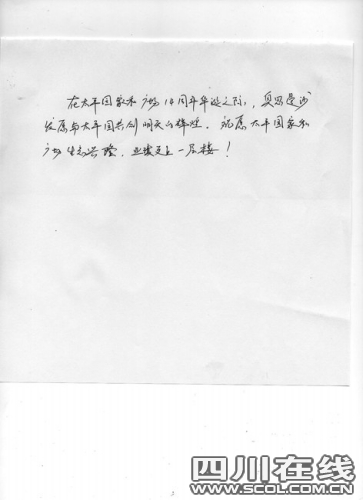 在太平国家木广场14周年华诞之际，
发展与太平国共创明天的辉煌，祝愿太平国家
广场生意兴隆，业绩更上一层楼！
四川在线
WWW.SCOL.COM.CN